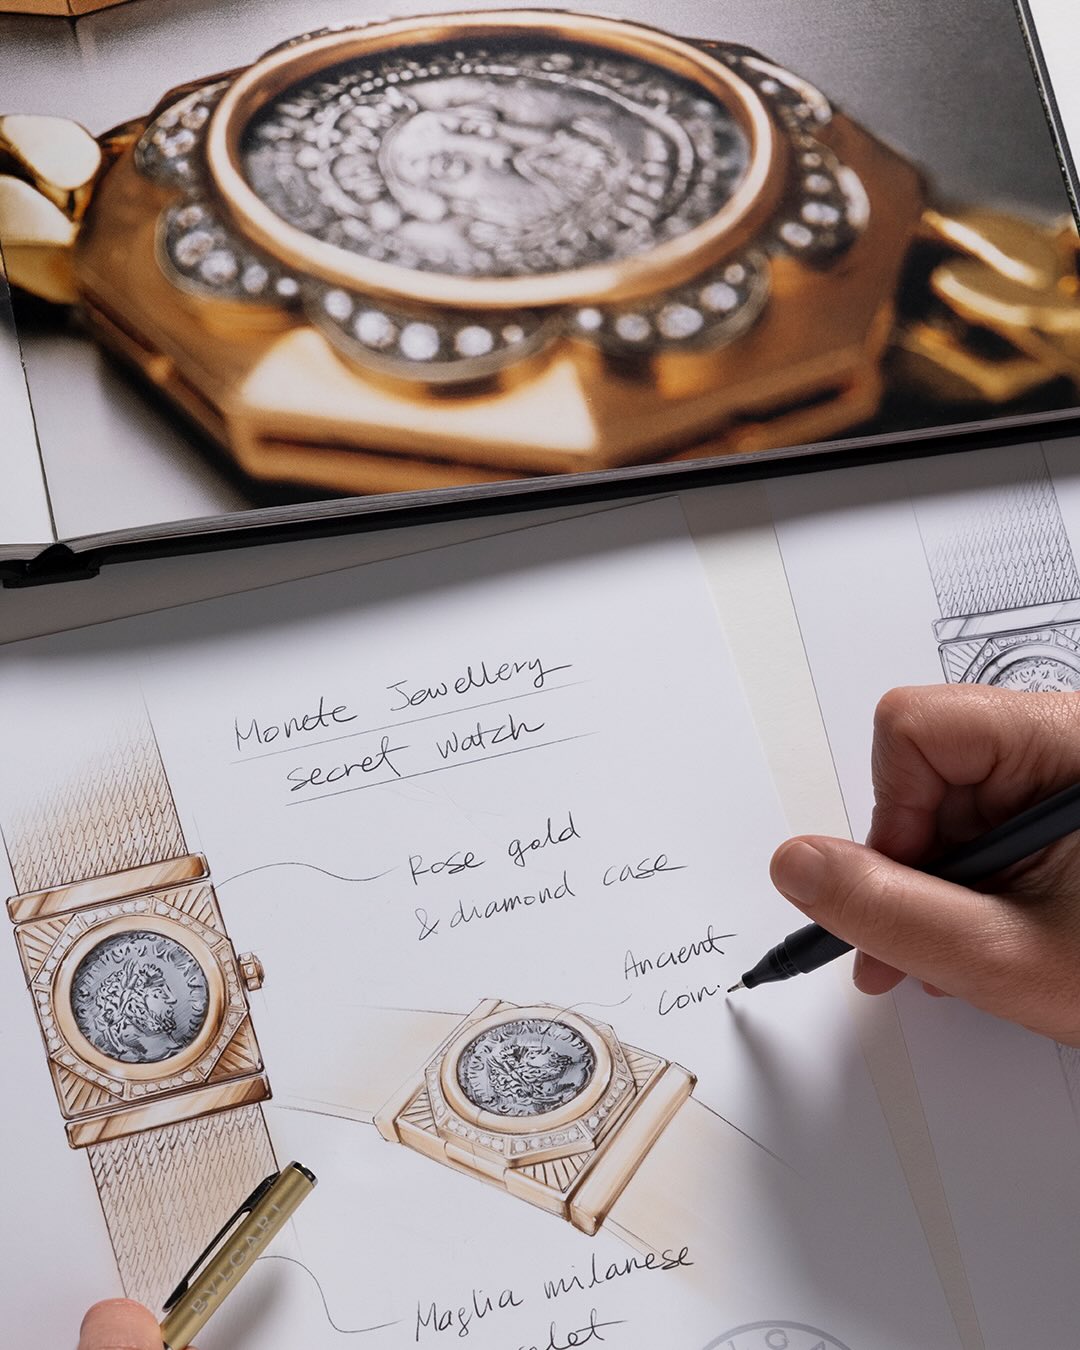 Monete Jewellery
secret watch
Rose gold
& diamond case
Ancient
Coin.
BVLGARI
Maglia milanese